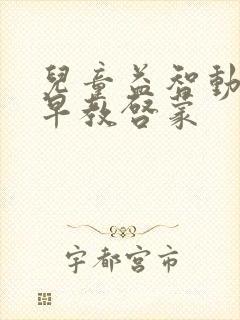 兒童益智動
早教啓蒙
宇都宮市